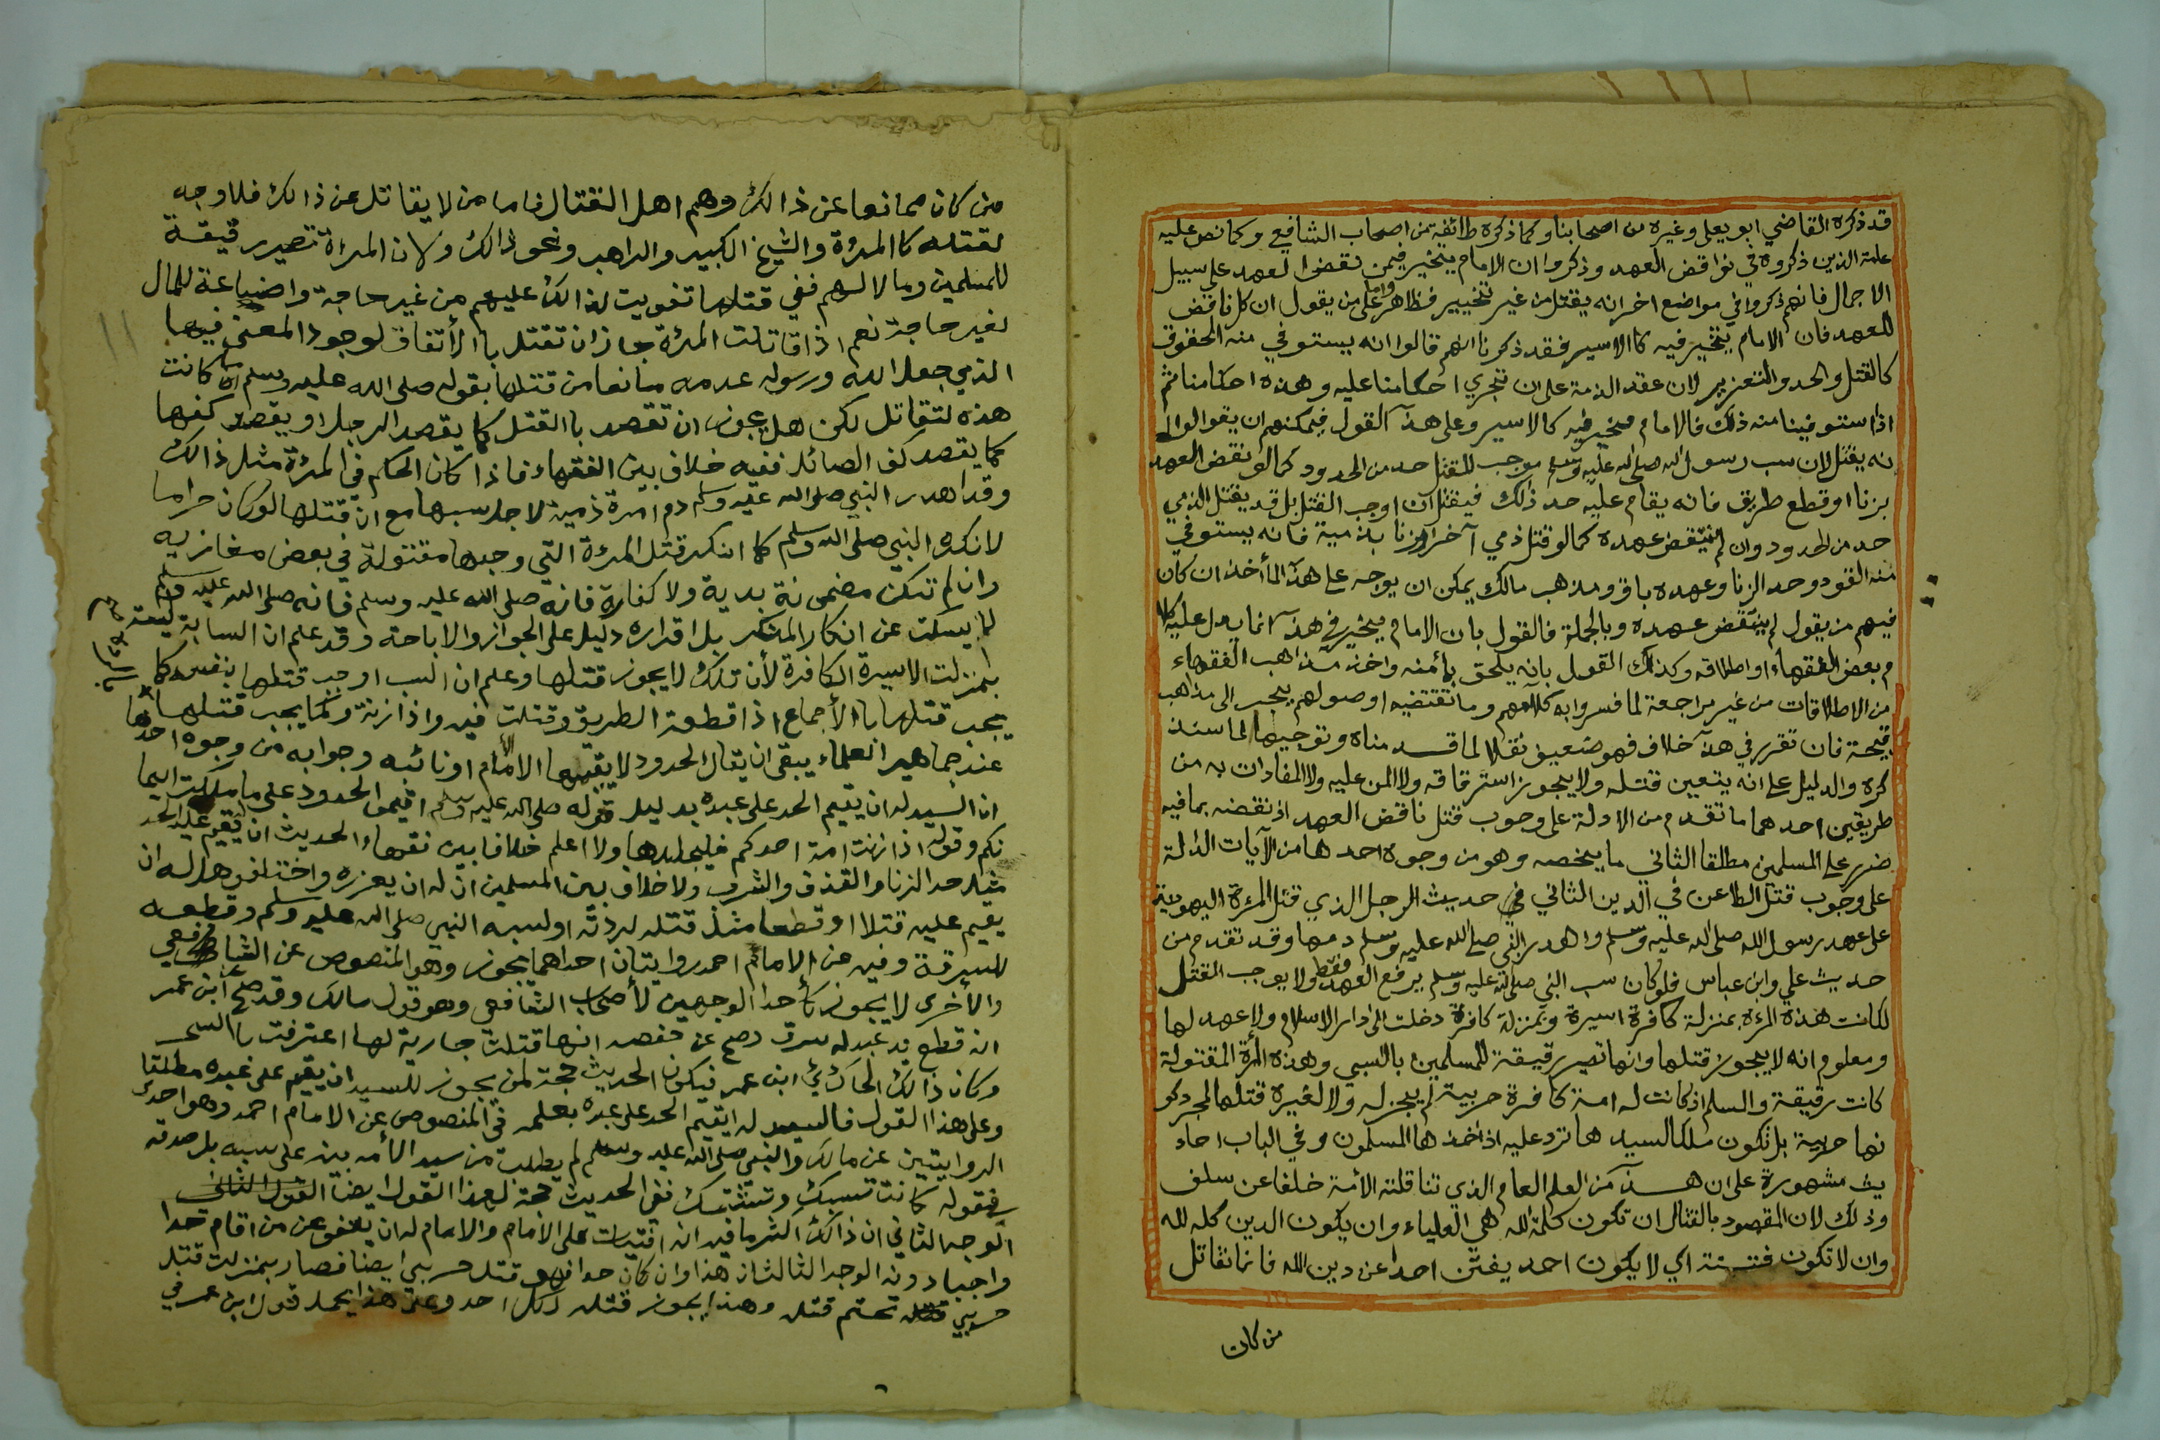 قد ذكره القاضي ابو يعلى وغيره من اصحابنا وكما ذكره طائفة من اصحاب الشافعي وكما نص عليه
عامة الذين ذكروه في نواقض العهد وذكروا ان الامام يتخير فيمن نقض العهد على سبيل
الاجمال فانهم ذكروا في مواضع اخر انه يقتل من غير تخيير فظاهر واما على من يقول ان كل ناقض
للعهد فان الامام يتخير فيه كاالاسير فقد ذكرنا انهم قالوا انه يستوفي منه الحقوق
كالقتل والحد والتعزير لان عقد الذمة على ان تجري احكامنا عليه وهذه احكامنا ثم
اذا ستوفينا منه ذلك فالامام مخير فيه كالاسير وعلى هذا القول فيمكنهم ان يقوالوا
نه يقتل لان سب رسول الله صلى الله عليه وسلم موجب للقتل حد من الحدود كمالو نقض العهد
بزنا او قطع طريق فانه يقام عليه حد ذلك فيقتل ان اوجب القتل بل قد يقتل الذمي
حد من الحدود وان لم ينتقض عهده كمالو قتل ذمي آخر او زنا بذمية فانه يستوفي
منه القود وحد الزنا وعهده باق ومذهب مالك يمكن ان يوجه على هذا المأخذ ان كان
فيهم من يقول لم ينتقض عهده وبالجملة فالقول بان الامام يتخير في هذا انما يدل عليه كلا
م بعض الفقهاء او اطلاقه وكذلك القول بانه يلحق بأمنه واخذ مذاهب الفقهاء
من الاطلاقات من غير مراجعة لما فسروا به كلامهم وما تقتضيه اوصولهم يجب الى مذاهب
قبيحة فان تقرر في هذا خلاف فهو ضعيف نقلا لما قد مناه وتوجيها لما سنذ
كره والدليل على انه يتعين قتله ولا يجوز استرقاقه ولا المن عليه ولا المفادات به من
طريقين احدهما ما تقدم من الادلة على وجوب قتل ناقض العهد اذ نقضه بما فيه
ضرر على المسلمين مطلقا الثاني ما يخصه وهو من وجوه احدها من الآيات الدالة
على وجوب قتل الطاعن في الدين الثاني في حديث الرجل الذي قتل المرءة اليهودية
على عهد رسول الله صلى الله عليه وسلم واهدر النبي صلى الله عليه وسلم دمها وقد تقدم من
حديث علي وابن عباس فلو كان سب النبي صلى الله عليه وسلم يرفع العهد فقط ولا يوجب القتل
لكانت هذه المرءة بمنزلة كافرة اسيرة وبمنزلة كافرة دخلت الى دار الاسلام ولا عهد لها
ومعلوم انه لا يجوز قتلها وانها تصير رقيقة للمسلمين بالسبي وهذه المرأة المقتولة
كانت رقيقة والسلم اذ كانت له امة كافرة حربية لم يجز له ولا لغيره قتلها لمجرد كو
نها حربية بل تكون ملكا لسيدها ترد عليه اذ اخذها المسلمون وفي الباب احاد
يث مشهورة على ان هذا من العلم العام الذي تناقلته الأمة خلفا عن سلف
وذلك لان المقصود بالقتال ان تكون كلمة الله هي العلياء وان يكون الدين كله لله
وان لا تكون فتنة اي لا يكون احد يفتن احدا عن دين الله فانما تقاتل
من كان
من كان ممانعا عن ذالك وهم اهل القتال فاما من لا يقاتل عن ذالك فلا وجه
لقتله كاالمرءة والشيخ الكبير والراهب ونحو ذالك ولان المرأة تصير رقيقة
للمسلمين وما لا لهم ففي قتلها تفويت لذالك عليهم من غير حاجة واضاعة للمال
لغير حاجة نعم اذا قاتلت المرءة جاز ان تقتل باالأتفاق لوجود المعنى فيها
الذي جعل الله ورسوله عدمه مانعا من قتلها بقوله صلى الله عليه وسلم ما كانت
هذه لتقاتل لكن هل يجوز ان تقصد باالقتل كما يقصد الرجل او يقصد كفها
كما يقصد كف الصائل ففيه خلاف بين الفقهاء فاذا كان الحكم في المرءة مثل ذالك
وقد اهدر النبي صلى الله عليه وسلم دم امرة ذمية لاجل سبها مع ان قتلها لو كان حراما
لانكره النبي صلى الله وسلم كما انكر قتل المرءة التي وجدها مقتولة في بعض مغازيه
وان لم تكن مضمونة بدية ولا كفارة فانه صلى الله عليه وسلم فانه صلى الله عليه وسلم
لا يسكت عن انكار المنكر بل اقراره دليل على الجواز والاباحة وقد علم ان السابة ليست
بمنزلت الاسيرة الكافرة لأن تلك لا يجوز قتلها وعلم ان السب اوجب قتلها بنفسه كما
يجب قتلها باالأجماع اذا قطعة الطريق وقتلت فيه واذا زنة وكما يجب قتلها
عند جماهير العلماء يبقى ان يقال الحدود لا يقيمها الا الامام او نائبه وجوابه من وجوه احدها
ان السيد له ان يقيم الحد على عبده بدليل قوله صلى الله عليه وسلم اقيموا الحدود على ما ملكت ايما
نكم وقوله اذا زنت امة احدكم فليجلدها ولا اعلم خلافا بين فقهاء الحديث ان يقيم عليه الحد
مثل حد الزنا والقذف والشرب ولا خلاف بين المسلمين ان له ان يعزره واختلفوا هل له ان
يقيم عليه قتلا او قطعا مثل قتله لردته او لسبه النبي صلى الله عليه وسلم وقطعه
للسرقة وفيه عن الامام احمد روايتان احداهما يجوز وهو المنصوص عن الشافعي
والأخرى لا يجوز كأحد الوجهين لأصحاب الشافعي وهو قول مالك وقد صح عن ابن عمر
انه قطع يد عبد له سرق وصح عن حفصه انها قتلت جارية لها اعترفت باالسحر
وكان ذالك ابن عمر فيكون الحديث حجة لمن يجوز للسيد ان يقيم على عبده مطلقا
وعلى هذا القول فالسيد له ان يقيم الحد على عبده بعلمه في المنصوص عن الامام احمد وهو احدى
الروايتين عن مالك والنبي صلى الله عليه وسلم لم يطلب من سيد الأمة بينة على سبه بل صدقه
في قوله كانت تسبك وتشتمك ففي الحديث حجة لهذا القول ايضا
الوجه الثاني ان ذالك اكثر ما فيه انه افتيات على الامام والامام له ان يعفو عن من اقام حدا
واجبا دونه الوجه الثالث ان هذا وان كان حدا فهو قتل حربي ايضا فصار بمنزلت قتل
حربي تحتم قتله وهذا يجوز قتله لكل احد وعلى هذا يحمل قول ابن عمر في